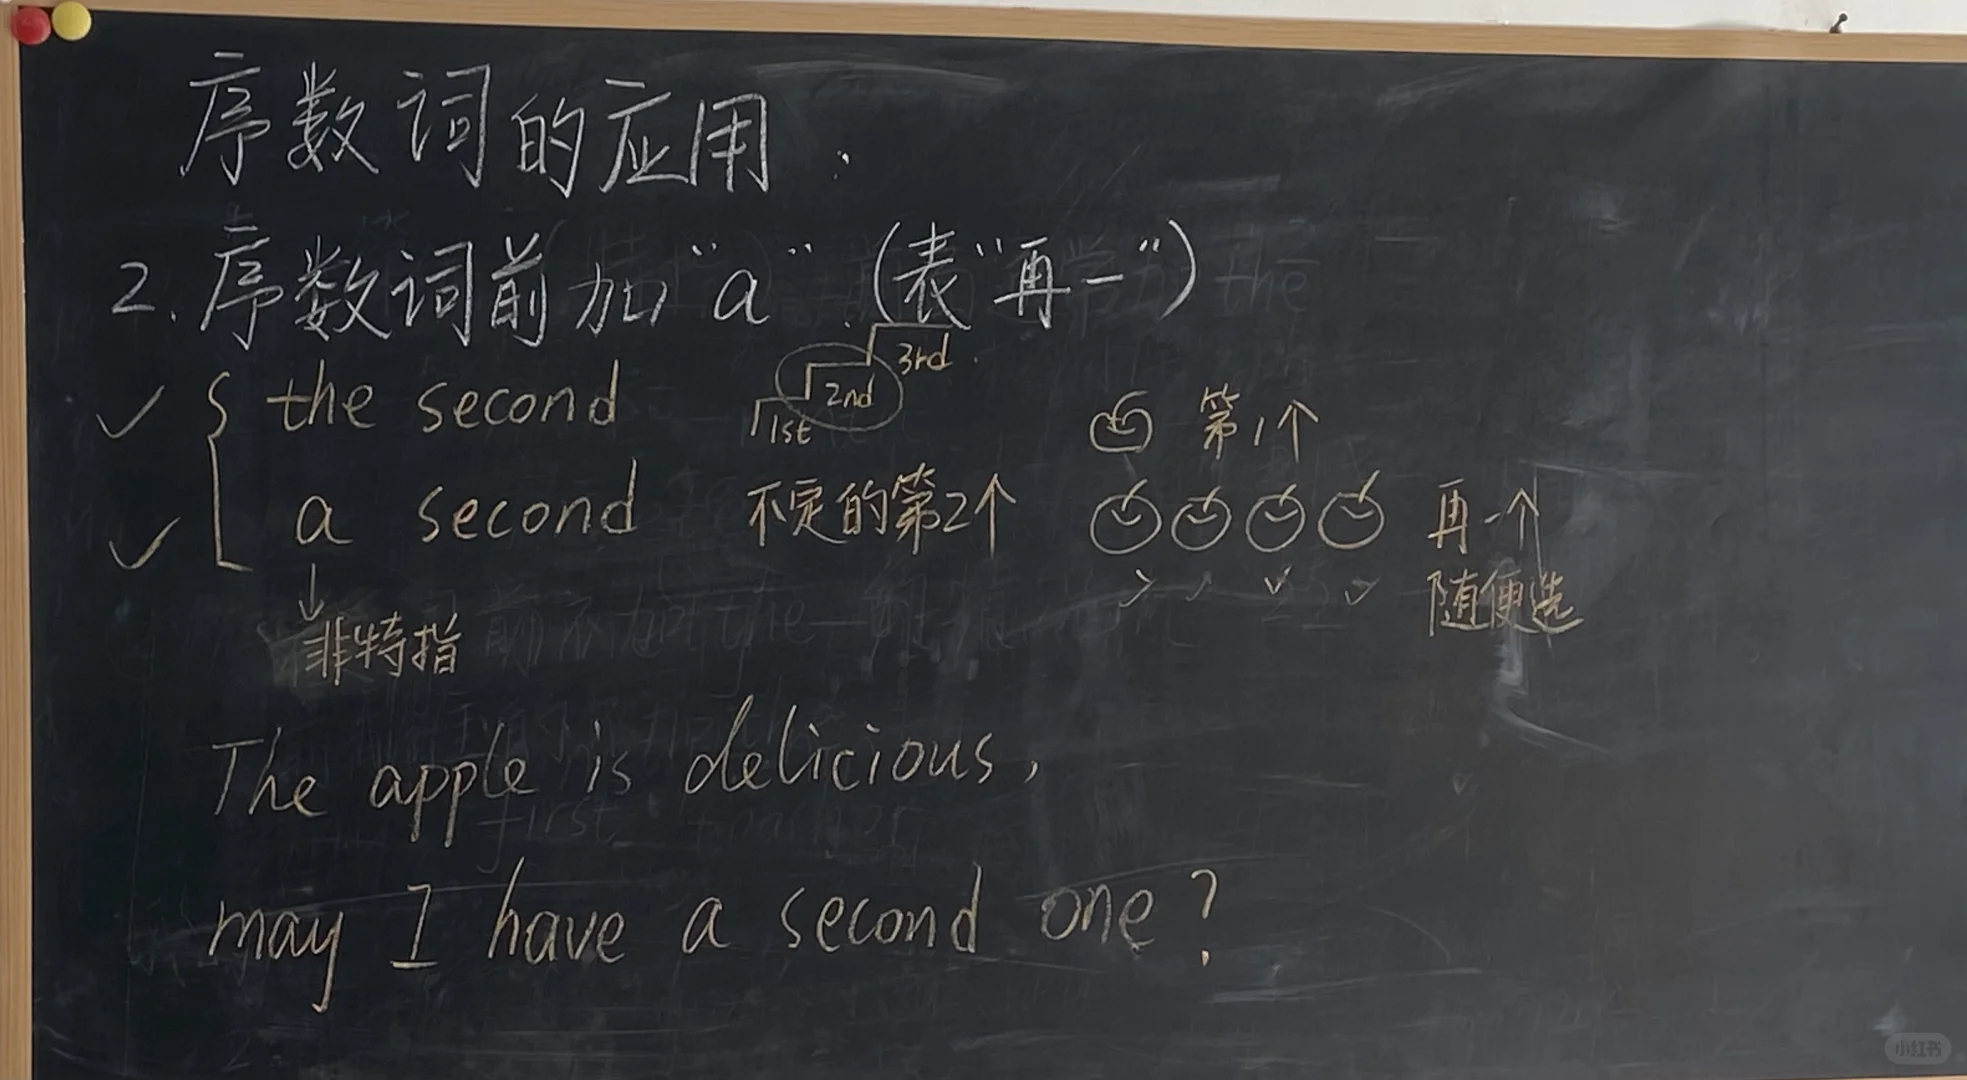 序数词的应用：
2.序数词前加“a”.(表“再一”)
the second
1st 2nd 3rd
第1个
a second 不定的第2个
再一个
随便选
非特指
The apple is delicious,
may I have a second one?
小红书